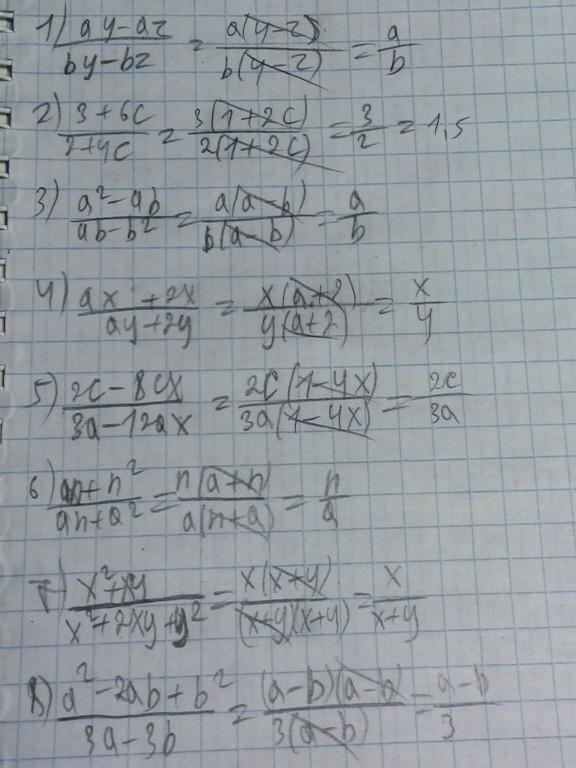 1) (ay-az)/(by-bz) = a(y-z)/b(y-z) = a/b
2) (3+6c)/(2+4c) = 3(1+2c)/2(1+2c) = 3/2 = 1,5
3) (a²-ab)/(ab-b²) = a(a-b)/b(a-b) = a/b
4) (ax+2x)/(ay+2y) = x(a+2)/y(a+2) = x/y
5) (2c-8cx)/(3a-12ax) = 2c(1-4x)/3a(1-4x) = 2c/3a
6) (an+n²)/(an+a²) = n(a+n)/a(n+a) = n/a
7) (x²+xy)/(x²+2xy+y²) = x(x+y)/(x+y)(x+y) = x/(x+y)
8) (a²-2ab+b²)/(3a-3b) = (a-b)(a-b)/3(a-b) = (a-b)/3